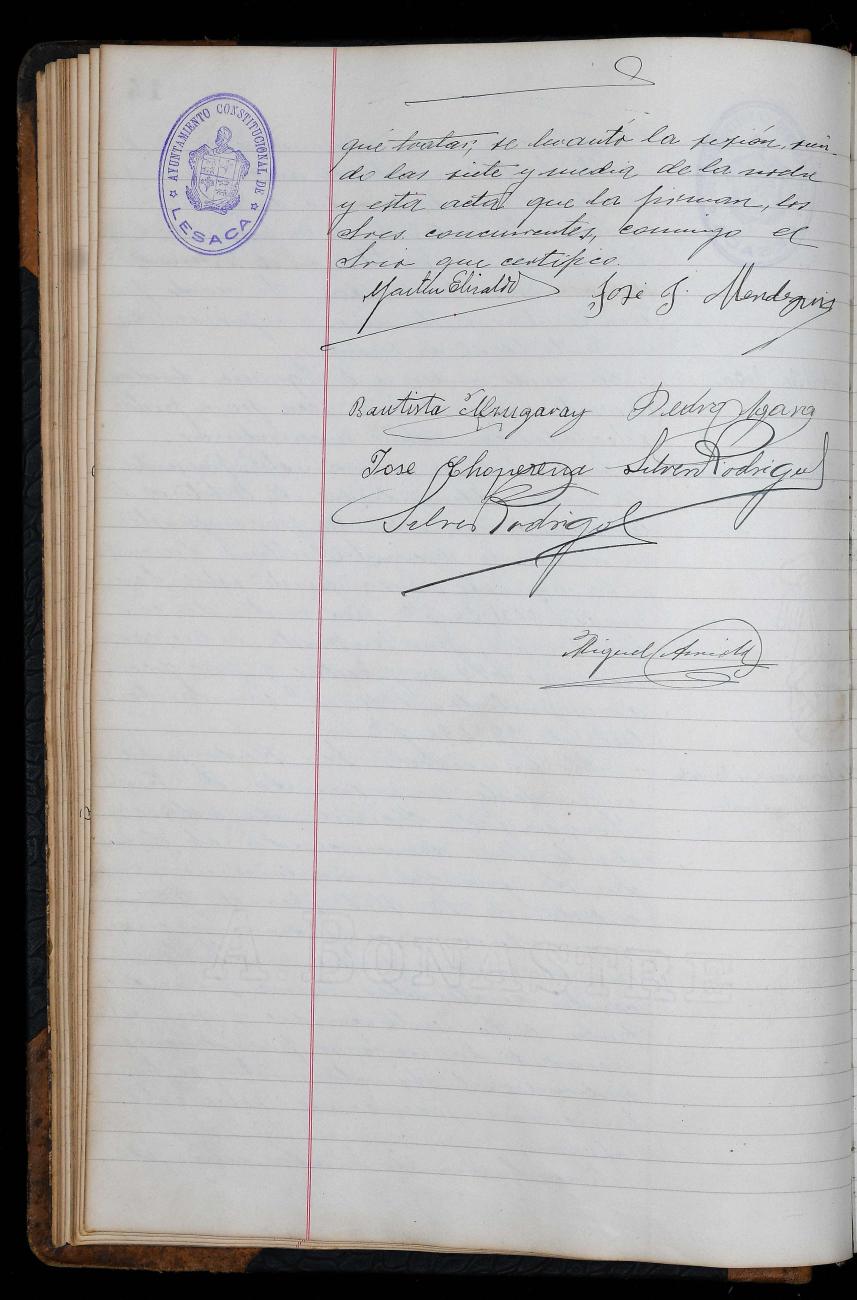 AYUNTAMIENTO CONSTITUCIONAL DE
LESACA
que tratar; se levantó la sesión, sien-
do las siete y media de la noche
y esta acta que la firman, los
Sres. concurrentes, conmigo el
Srio que certifico.
Martin Elizalde José J. Mendeguia
Bautista Pedro
Jose Choperena Silverio Rodriguez
Silverio Rodriguez
Miguel